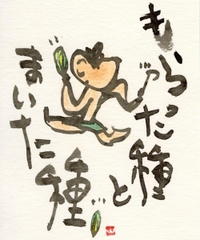 もらった種と
まいた種